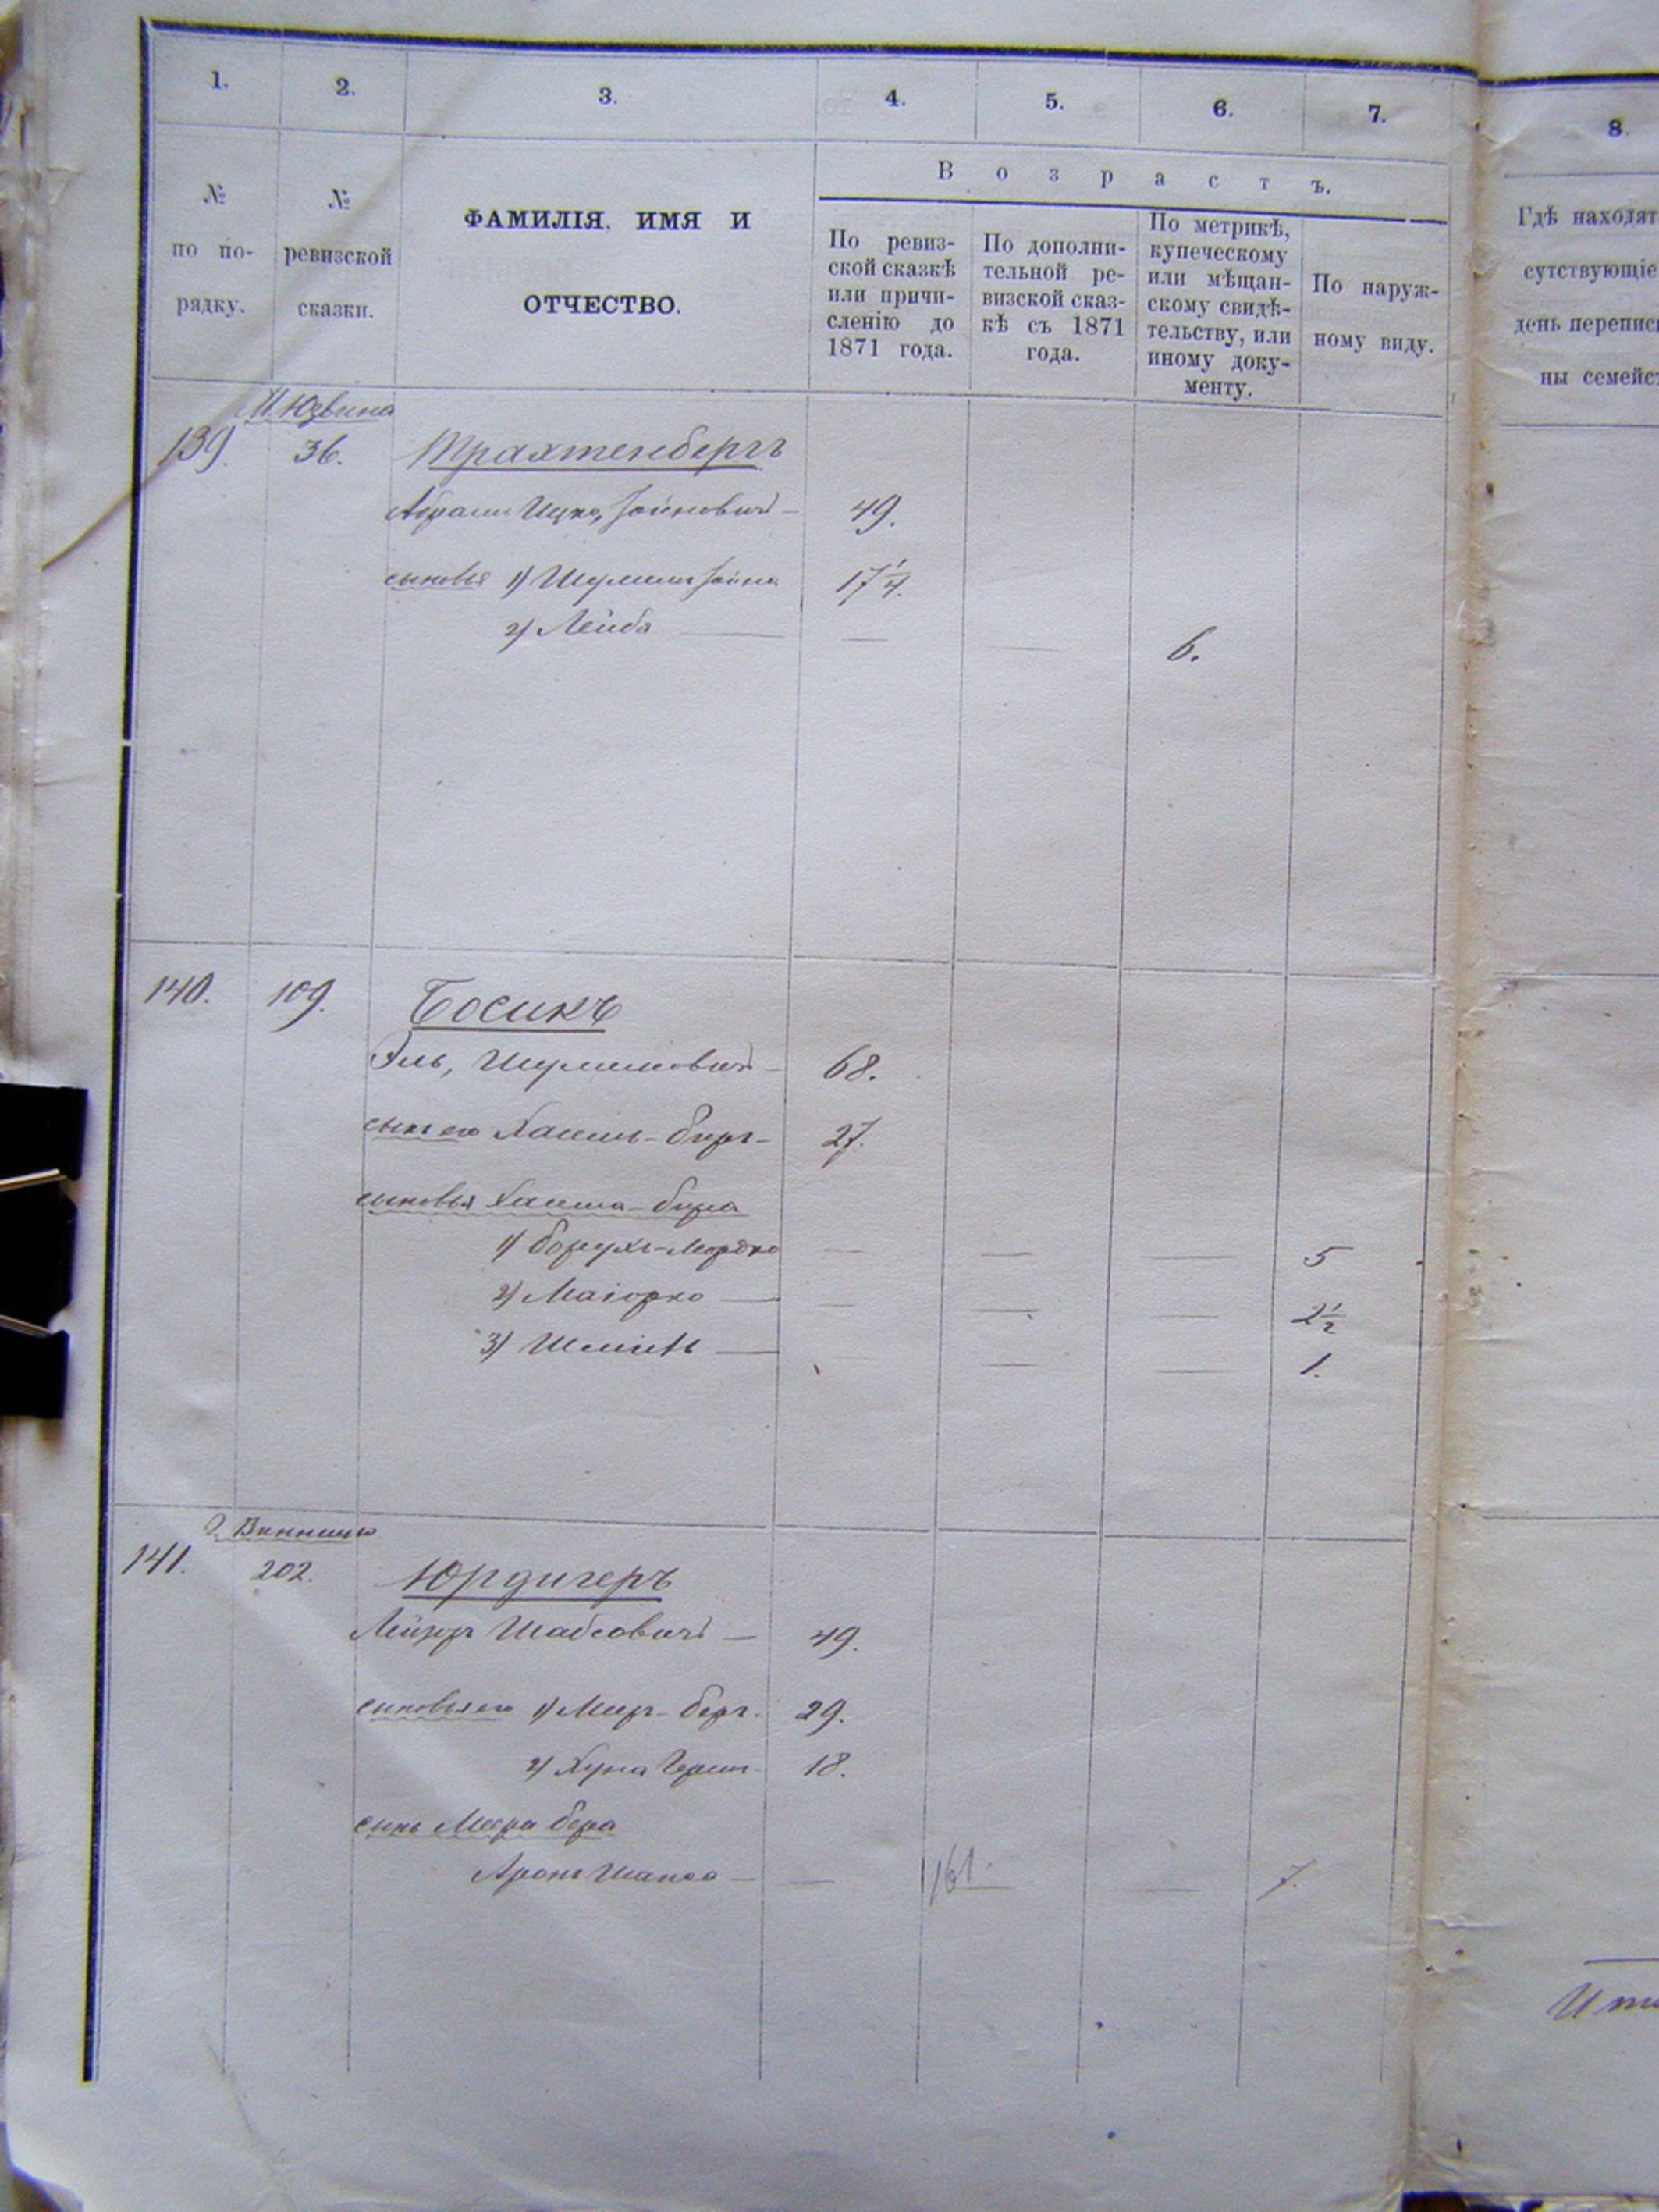 1. 2. 3. 4. 5. 6. 7. 8.
№ по по-рядку.
№ ревизской сказки.
ФАМИЛІЯ, ИМЯ И
ОТЧЕСТВО.
Возрастъ.
По ревиз-
ской сказкѣ
или причи-
сленію до
1871 года.
По дополни-
тельной ре-
визской сказ-
кѣ съ 1871
года.
По метрикѣ,
купеческому
или мѣщан-
скому свидѣ-
тельству, или
иному доку-
менту.
По наруж-
ному виду.
Гдѣ находят
сутствующіе
день перепис
ны семейс
М. Юзвина
139. 36. Трахтенбергъ
Абрамъ Ицко, Іойновичъ — 49.
сыновья 1) Шулимъ Іойна 17 1/4.
2) Лейба — — — 6.
140. 109. Босикъ
Эль, Шулимовичъ — 68.
сынъ его Хаимъ-Беръ — 27.
сыновья Хаима-Бера
1) Борухъ-Мордко — — — 5
2) Маіорко — — — — 2 1/2
3) — — — 1.
г. Винница
141. 202. Юрдигеръ
Лейзеръ Шабсовичъ — 49.
сыновья его 1) Меиръ-Беръ. 29.
2) Хуна Гершъ 18.
сынъ Меера Бера
Аронъ Шапсо — — 161. — 7.
Ит